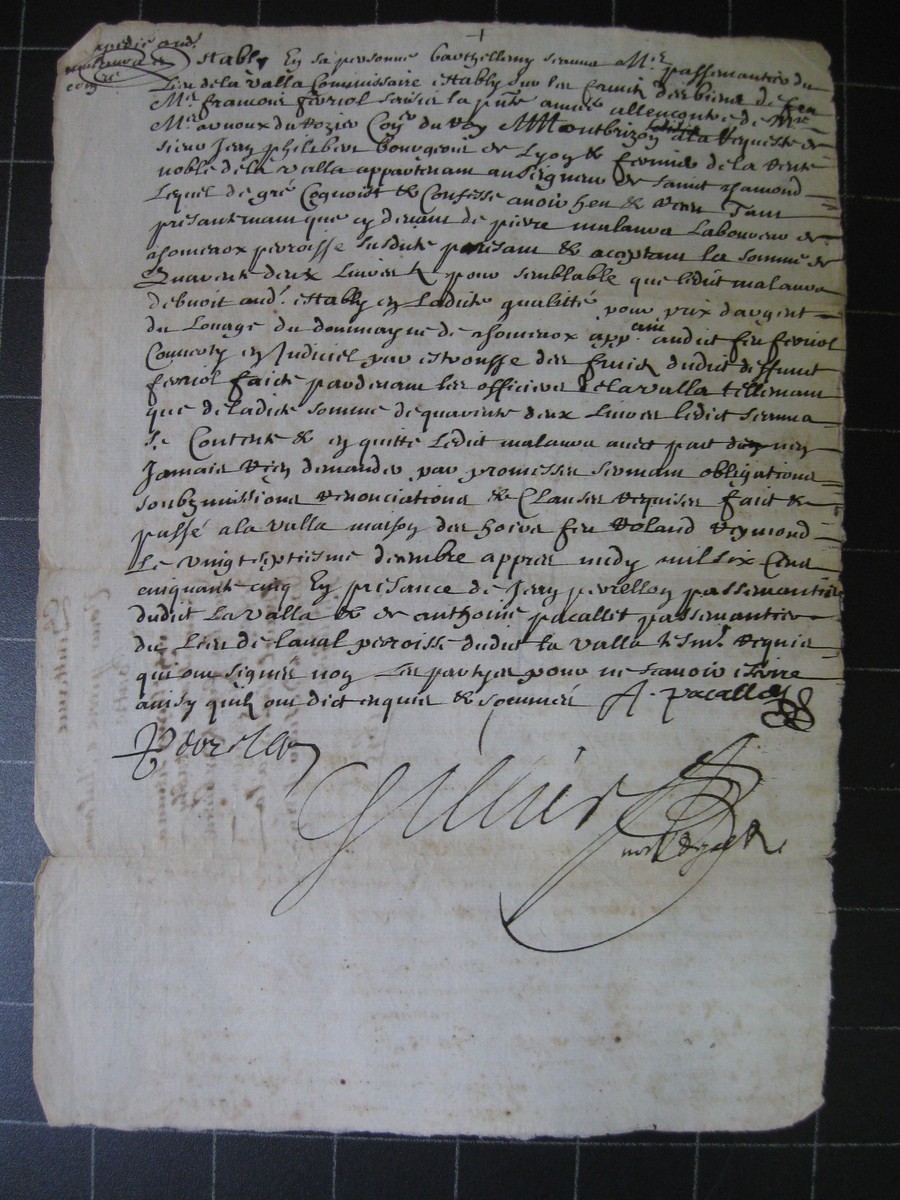 Estably En sa personne barthellemy seruua Mre passemantier du
Lieu de la valla Commissaire estably sur les fruicts des biens de feu
Mre francois feriol saisies la pnte annee allencontre de Mre
Mre arnoux du Rozier Coner du Roy a Montbrizon a la Requeste de
sieur Jean philebert bourgeois de Lyon & fermier de la Rente
noble de la valla appartenant au seigneur de sainct chamond
Lequel de gré Cognoist & Confesse auoir heu & Receu Tant
présantemant que cy deuant de pierre malaura Laboureur de
chomeaux parroisse susdicte présant & acceptant la somme de
Quarente deux Liures & pour semblable que ledit malaura
debuoit aud. estably en Ladicte quallitté pour prix d'argent
du Louage du dommayne de chomeaux app. audict feu feriol
Conuerty en Judiciel par estrousse des fruicts dudict deffunct
feriol faicte pardeuant les officiers de la valla tellemant
que de ladicte somme de quarente deux Liures ledict seruua
se Contente & en quitte Ledict malaura auec pact de nen
Jamais rien demander par promesses sermant obligations
soubzmissions renonciations & Clauses requises faict &
passé a la valla maison des hoirs feu Roland Reymond
Le vingt septiesme decembre appres midy mil six Cens
cinquante cinq En présance de Jean perrellon passemantier
dudict La valla & de anthoine pacallet passemantier
du Lieu de laval parroisse dudict la valla tesms. requis
qui ont signes non les partyes pour ne scauoir escrire
ainsy quils ont dict enquis & sommés A. pacallet